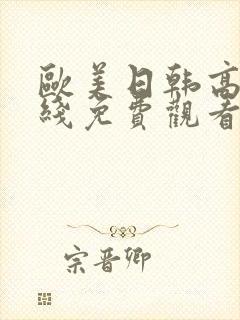 歐美日韩高
綫免費觀看
宗晋卿